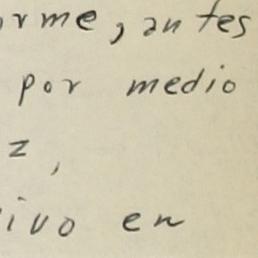 orme, antes
por medio
z,
ivo en